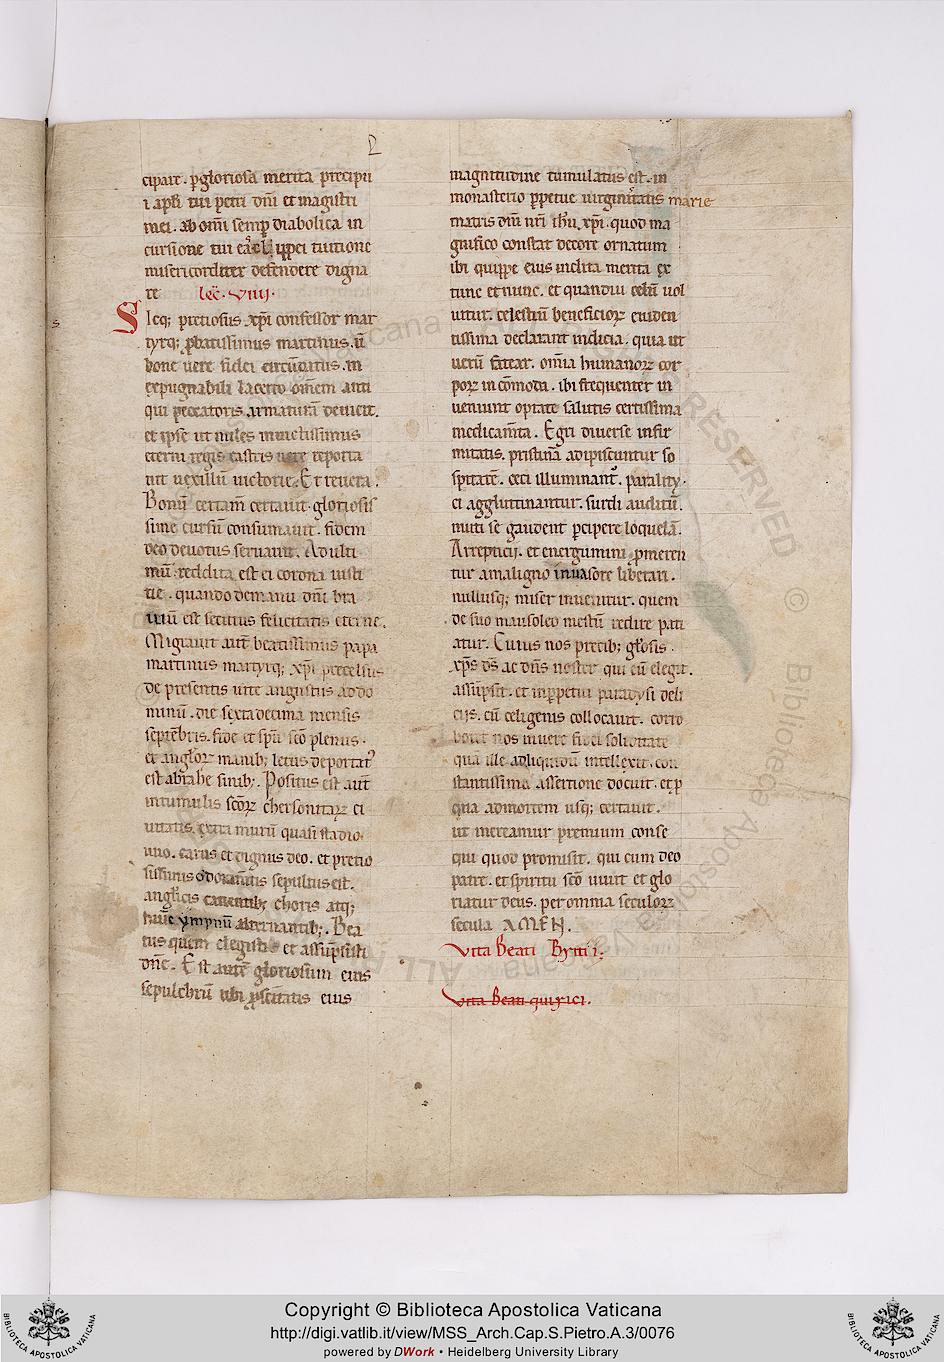 2
cipare. ꝑgloriosa merita precipu
i apłi tui petri dñi et magistri
mei. ab omĩ semꝑ diabolica in
cursione tui tuitione
misericorditer defendere digna
re lec̃. viiij.
Sicq; pretiosus xp̃i confessor mar
tyrq; ꝓbatissimus martinus. ũ
bone uere fidei circũdatus. in
expugnabili lacerto om̃em anti
qui peccatoris armaturã deuicit.
et ipse ut miles inuictissimus
eterni regis castris uere reporta
uit uexillũ uictorie. Et reuera
Bonũ certam̃ certauit. gloriosis
sime cursũ consumauit. fidem
deo deuotus seruauit. Adulti
mũ reddita est ei corona iusti
tie. quando demanu dñi bra
uiũ est secutus felicitatis eterne.
Migrauit aut̃ beatissimus papa
martinus martyrq; xp̃i precelsus
de presentis uite angustiis addo
minũ. die sextadecima mensis
septẽbris. fide et sp̃u sc̃o plenus.
et angloꝝ manib; letus deportat᷒
est abrahe sinib;. Positus est aut̃
intumulis sc̃oꝝ chersonitaꝝ ci
uitatis. extra murũ quasi stadio
uno. carus et dignus deo. et pretio
sissimis odoram̃tis sepultus est.
angl̃icis canentib; choris atq;
hunc ympnũ alternantib;. Bea
tus quem elegisti et assũpsisti
dñe. Est autẽ gloriosum eius
sepulchrũ ubi ꝓsc̃itatis eius
magnitudine tumulatus est. in
monasterio ꝑpetue uirginitatis marie
matris dñi nr̃i ihũ xp̃i. quod ma
gnifico constat decore ornatum
ibi quippe eius inclita merita ex
tunc et nunc. et quandiu celũ uol
uitur. celestiũ beneficioꝝ euiden
tissima declarant indicia. quia ut
uerũ fatear. om̃ia humanoꝝ cor
poꝝ incõmoda. ibi frequenter in
ueniunt optate salutis certissima
medicam̃ta. Egri diuerse infir
mitatis. pristinã adipiscuntur so
spitatẽ. ceci illuminant᷒. parality
ci agglutinantur. surdi auditũ.
muti se gaudent ꝑcipere loquelã.
Arrepticii. et energumini ꝓmeren
tur amaligno inuasore liberari.
nullusq; miser inuenitur. quem
de suo mausoleo mestũ redire pati
atur. Cuius nos precib; gl̃osis.
xp̃s d̃s ac dñs noster qui eũ elegit.
assũpsit. et inꝑpetui paradysi deli
ciis. cũ celigenis collocauit. corro
boret nos inuere fidei soliditate
quã ille adliquidũ intellexit. con
stantissima assertione docuit. et ꝑ
qua admortem usq; certauit.
ut mereamur premium conse
qui quod promisit. qui cum deo
patre. et spiritu sc̃o uiuit et glo
riatur deus. per omnia seculoꝝ
secula AMEN.
Vita Beati
Vita Beati quirici.
Copyright © Biblioteca Apostolica Vaticana
http://digi.vatlib.it/view/MSS_Arch.Cap.S.Pietro.A.3/0076
powered by DWork • Heidelberg University Library
BIBLIOTECA APOSTOLICA VATICANA
BIBLIOTECA APOSTOLICA VATICANA